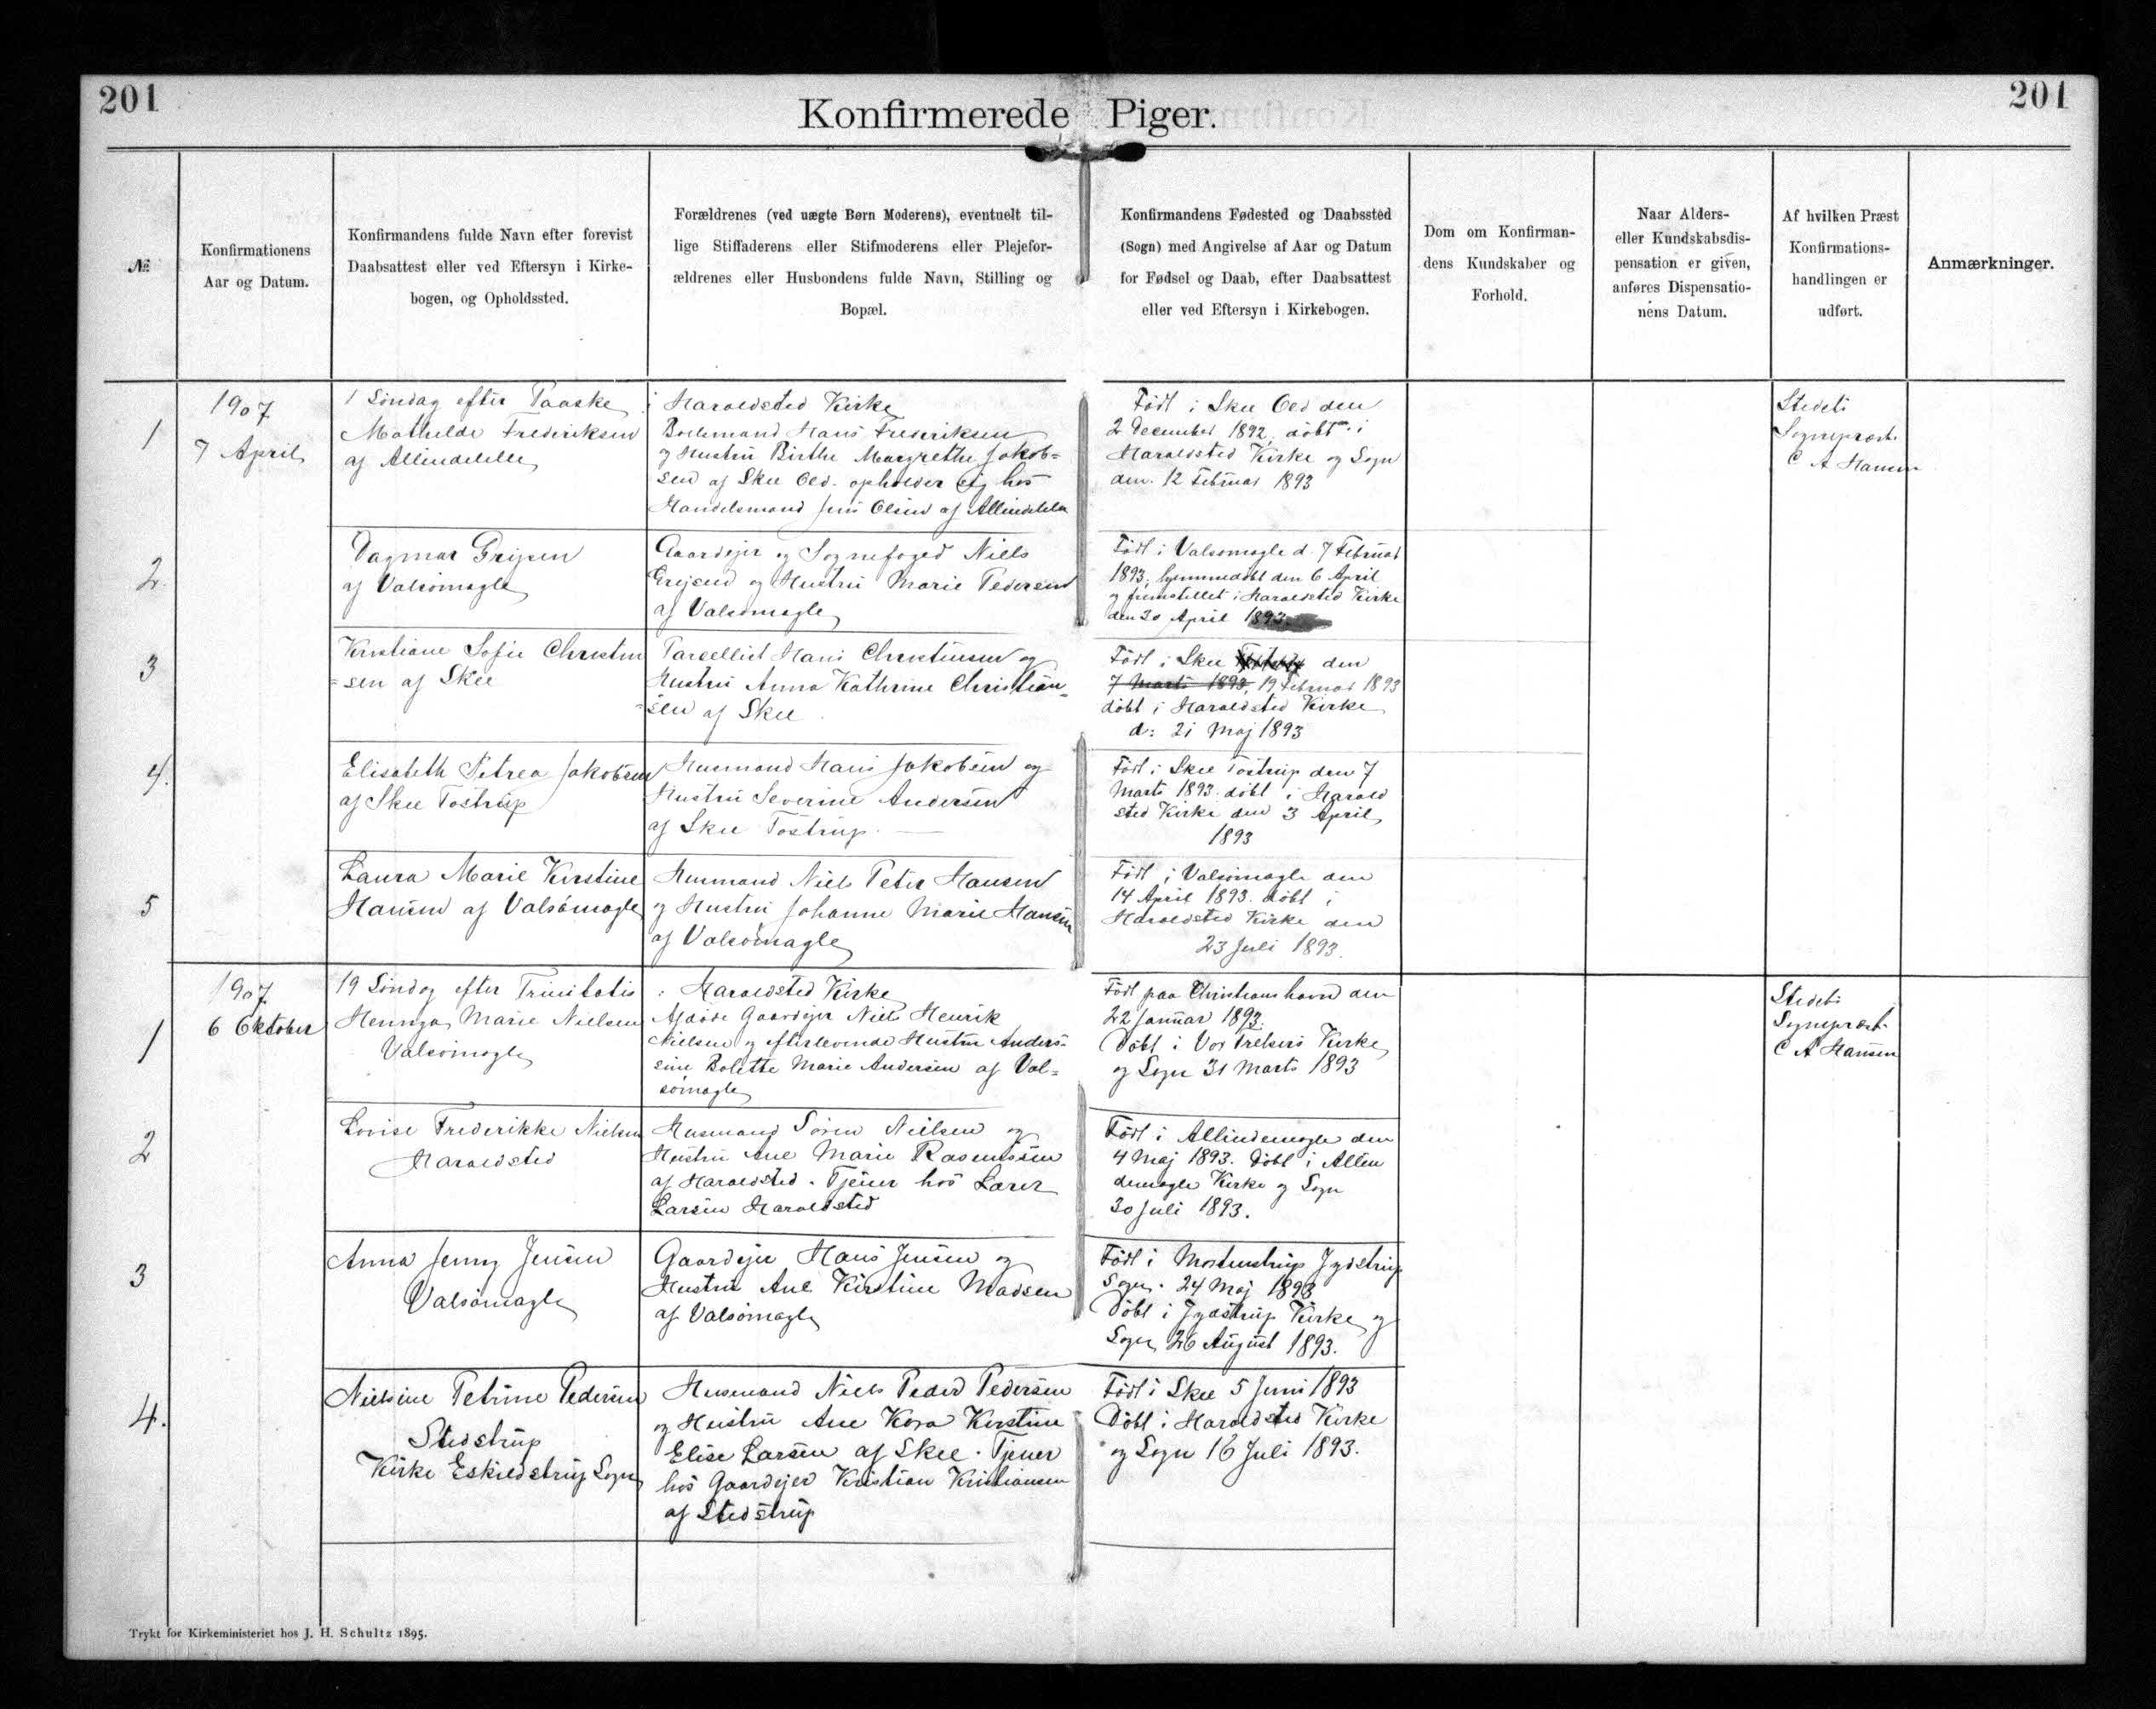 201
201
Konfirmerede Piger.
№
Konfirmationens
Aar og Datum.
Konfirmandens fulde Navn efter forevist
Daabsattest eller ved Eftersyn i Kirke-
bogen, og Opholdssted.
Forældrenes (ved uægte Børn Moderens), eventuelt til-
lige Stiffaderens eller Stifmoderens eller Plejefor-
ældrenes eller Husbondens fulde Navn, Stilling og
Bopæl.
Konfirmandens Fødested og Daabssted
(Sogn) med Angivelse af Aar og Datum
for Fødsel og Daab, efter Daabsattest
eller ved Eftersyn i Kirkebogen.
Dom om Konfirman-
dens Kundskaber og
Forhold.
Naar Alders-
eller Kundskabsdis-
pensation er given,
anføres Dispensatio-
nens Datum.
Af hvilken Præst
Konfirmations-
handlingen er
udført.
Anmærkninger.
1
1907
7 April
1 Søndag efter Paaske
Mathilde Frederiksen
af Allindelille
i Haraldsted Kirke
Boelsmand Hans Frederiksen
og Hustru Birthe Margrethe Jakob=
sen af Skee Old. opholder sig hos
Handelsmand Jens Olsen af Allindelille
Født i Skee Old den
2 December 1892, døbt i
Haraldsted Kirke og Sogn
den 12 Februar 1893
Stedets
Sognepræst
C A Hansen
2
Dagmar Grejsen
af Valsømagle
Gaardejer og Sognefoged Niels
Grejsen og Hustru Marie Pedersen
af Valsømagle
Født i Valsømagle d. 7 Februar
1893, hjemmedøbt den 6 April
og fremstillet i Haraldsted Kirke
den 30 April 1893.
3
Kirstiane Sofie Christen
=sen af Skee
Parcellist Hans Christensen og
Hustru Anna Kathrine Christian=
=sen af Skee
Født i Skee den
7 Marts 1893, 19 Februar 1893
døbt i Haraldsted Kirke
d: 21 Maj 1893
4.
Elisabeth Petrea Jakobsen
af Skee Tostrup
Husmand Hans Jakobsen og
Hustru Severine Andersen
af Skee Tostrup. —
Født i Skee Tostrup den 7
Marts 1893. døbt i Harald
sted Kirke den 3 April
1893
5
Laura Marie Kirstine
Hansen af Valsømagle
Husmand Niels Peter Hansen
og Hustru Johanne Marie Hansen
af Valsømagle
Født i Valsømagle den
14 April 1893. døbt i
Haraldsted Kirke den
23 Juli 1893.
1
1907
6 Oktober
19 Søndag efter Trinitatis
Henny Marie Nielsen
Valsømagle
i Haraldsted Kirke
Afdøde Gaardejer Niels Henrik
Nielsen og efterlevende Hustru Anders=
sine Bolette Marie Andersen af Val=
sømagle
Født paa Christianshavn den
22 Januar 1893.
Døbt i Vor Frelsers Kirke
og Sogn 31 Marts 1893
Stedets
Sognepræst
C A Hansen
2
Lovise Frederikke Nielsen
Haraldsted
Husmand Søren Nielsen og
Hustru Ane Marie Rasmussen
af Haraldsted. Tjener hos Lærer
Larsen Haraldsted
Født i Allindemagle den
4 Maj 1893. Døbt i Allin
demagle Kirke og Sogn
30 Juli 1893.
3
Anna Jenny Jensen
Valsømagle
Gaardejer Hans Jensen og
Hustru Ane Kirstine Madsen
af Valsømagle
Født i Mortenstrup Jydstrup
Sogn. 24 Maj 1893
Døbt i Jydstrup Kirke og
Sogn 26 August 1893.
4.
Nielsine Petrine Pedersen
Stedstrup
Kirke Eskildstrup Sogn
Husmand Niels Peder Pedersen
og Hustru Ane Kora Kirstine
Elise Larsen af Skee. Tjener
hos Gaardejer Kristian Kristiansen
af Stedstrup
Født i Skee 5 Juni 1893
Døbt i Haraldsted Kirke
og Sogn 16 Juli 1893.
Trykt for Kirkeministeriet hos J. H. Schultz 1895.